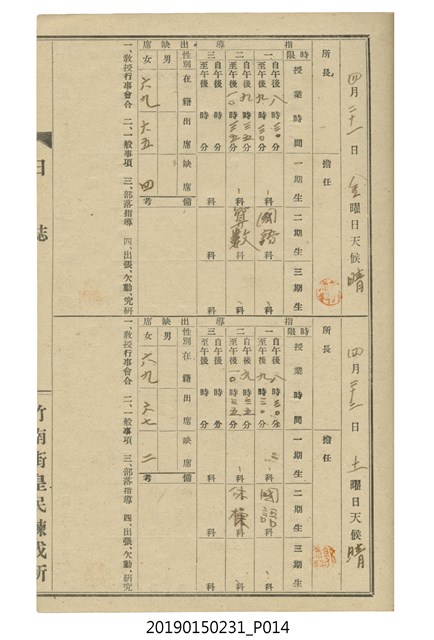 四月二十一日 金曜日 天候 晴
所長 擔任
時限 授業時間 一期生 二期生 三期生
指導
一 自午後八時三〇分 至午後九時三〇分 科 國語科 科
二 自午後九時三五分 至午後一〇時三五分 科 算数科 科
三 自午後 時 分 至午後 時 分 科 科 科
出缺席
性別 在籍 出席 缺席 備考
男
女 六九 六五 四
一、教授行事會合 二、一般事項 三、部落指導 四、出張、欠勤、究研
日誌
四月二十二日 土曜日 天候 晴
所長 擔任
時限 授業時間 一期生 二期生 三期生
指導
一 自午後八時三〇分 至午後九時三〇分 科 國語科 科
二 自午後九時三五分 至午後一〇時三五分 科 体操科 科
三 自午後 時 分 至午後 時 分 科 科 科
出缺席
性別 在籍 出席 缺席 備考
男
女 六九 六七 二
一、教授行事會合 二、一般事項 三、部落指導 四、出張、欠勤、究研
竹南街皇民鍊成所
20190150231_P014